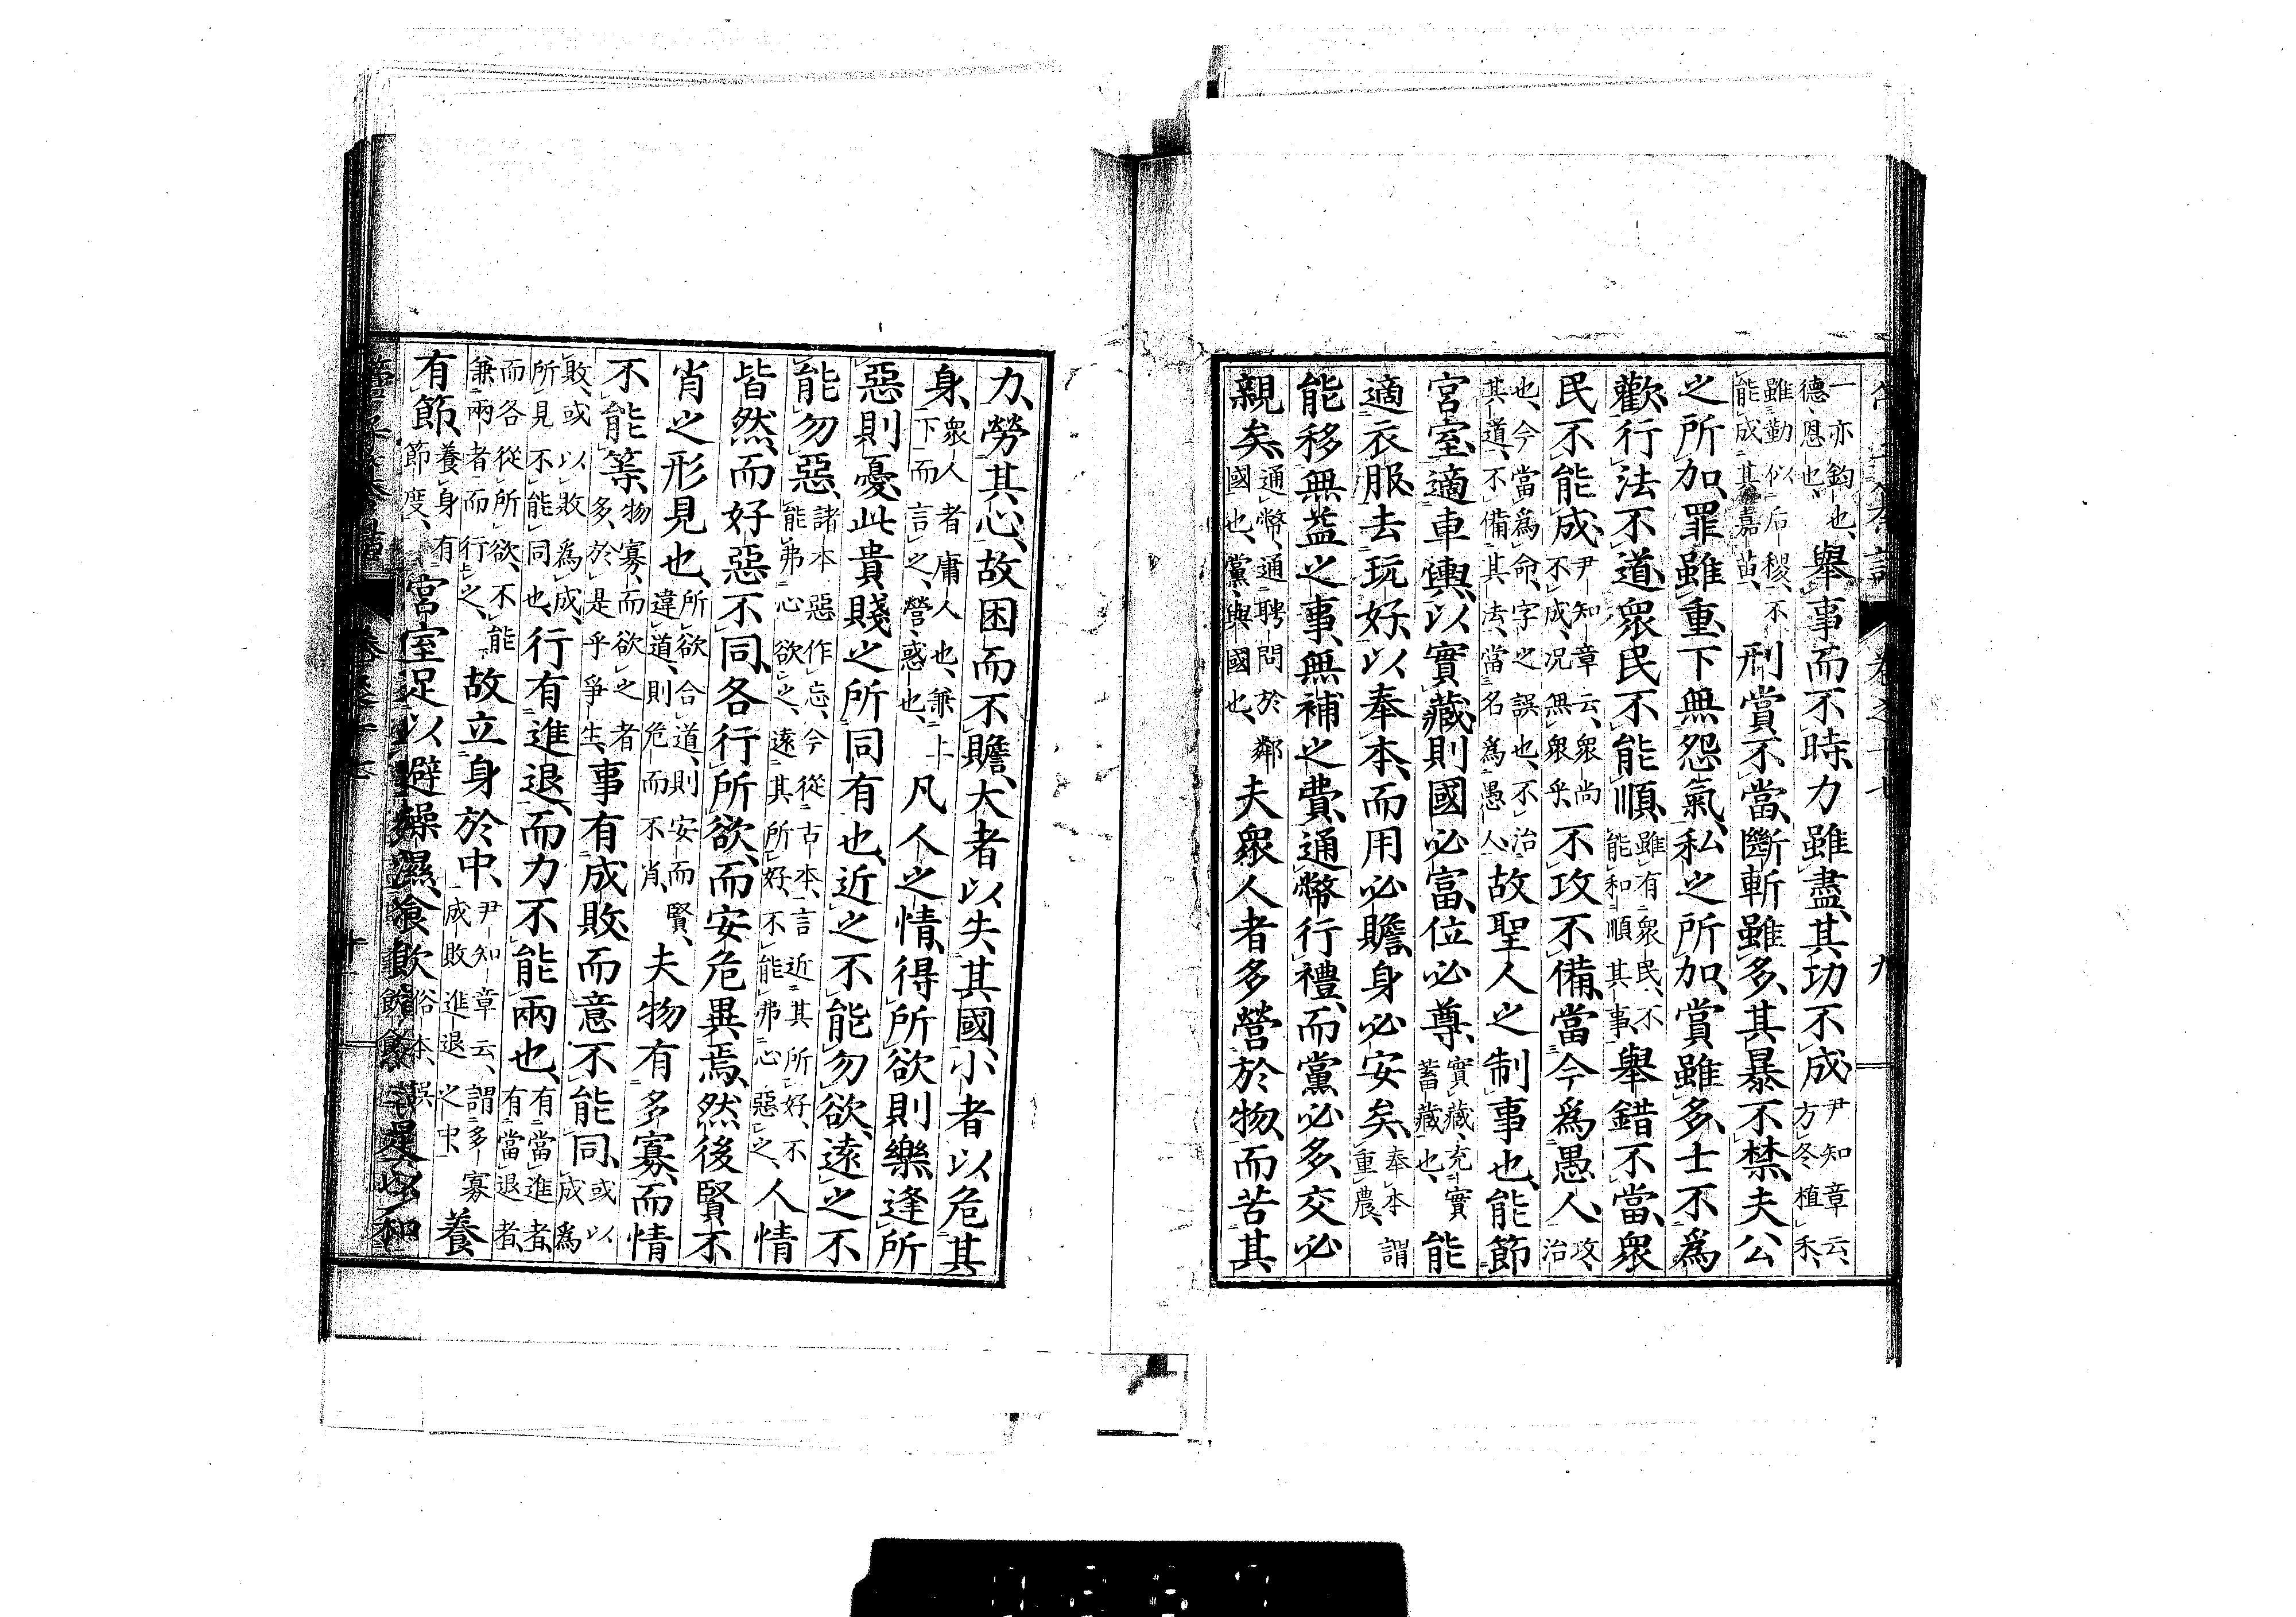 卷之十七　九
一亦鈞也、德、恩也、舉事而不時、力雖盡、其功不成、尹知章云、方冬植禾、
雖勤似后稷、不能成其嘉苗、刑賞不當、斷斬雖多、其暴不禁、夫公
之所加、罪雖重、下無怨氣、私之所加、賞雖多、士不爲
歡、行法不道、眾民不能順、雖有眾民、不能和順其事、舉錯不當、眾
民不能成、尹知章云、眾尚不成、况無眾乎、不攻不備、當今爲愚人、攻、治
也、今當爲命、字之誤也、不治其道、不備其法、當名爲愚人、故聖人之制事也、能節
宮室、適車輿、以實藏、則國必富、位必尊、實藏、充實蓄藏也、能
適衣服、去玩好、以奉本、而用必贍、身必安矣、奉本、謂重農、
能移無益之事、無補之費、通幣行禮、而黨必多、交必
親矣、通幣、通聘問於鄰國也、黨、與國也、夫眾人者、多營於物、而苦其
力、勞其心、故困而不贍、大者以失其國、小者以危其
身、眾人者庸人也、兼上下而言之、營、惑也、凡人之情、得所欲則樂、逢所
惡則憂、此貴賤之所同有也、近之不能勿欲、遠之不
能勿惡、諸本惡作忘、今從古本、言近其所好、不能弗心欲之、遠其所好、不能弗心惡之、人情
皆然、而好惡不同、各行所欲、而安危異焉、然後賢不
肖之形見也、所欲合道、則安而賢、違道、則危而不肖、夫物有多寡、而情
不能等、物寡、而欲之者多、於是乎爭生、事有成敗、而意不能同、或以成爲
敗、或以敗爲成、所見不能同也、行有進退、而力不能兩也、有當進者、有當退者、
而各從所欲、不能兼兩者而行之、故立身於中、尹知章云、謂多寡成敗進退之中、養
有節、養身有節度、宮室足以避燥濕、食飲